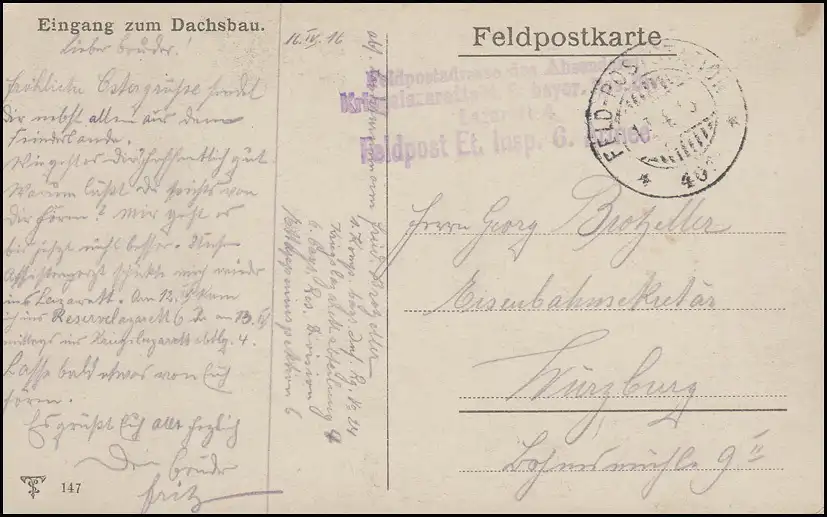 Eingang zum Dachsbau.
Lieber Bruder!
Fröhliche Ostergrüße sendet
Dir nebst allen aus dem
Feindeslande.
Wie geht es Dir? Hoffentlich gut
Warum läßt du nichts von
Dir hören? Mir geht es
bis jetzt nicht besser.
Assistenzarzt schickte mich wieder
ins Lazarett. Am 12. kam
ich ins Reservelazarett 6 am 13. IV
mittags ins Kriegslazarettabtlg. 4.
Lasse bald etwas von Euch
hören.
Es grüßt Euch alle herzlich
Dein Bruder
Fritz
147
16. IV. 16
Brotzeller
Inf. Rg. Nr.
Kriegslazarettabteilung 4
6. Bayr. Res. Division
Etappeninspektion 6
Feldpostkarte
Feldpostadresse des Absenders
Kriegslazarettabt. bayer.
Lazarett 4
Feldpost Et. Insp. 6. Armee
FELD-POST
* 40 *
Herrn Georg Brotzeller
Eisenbahnsekretär
Würzburg
9 II